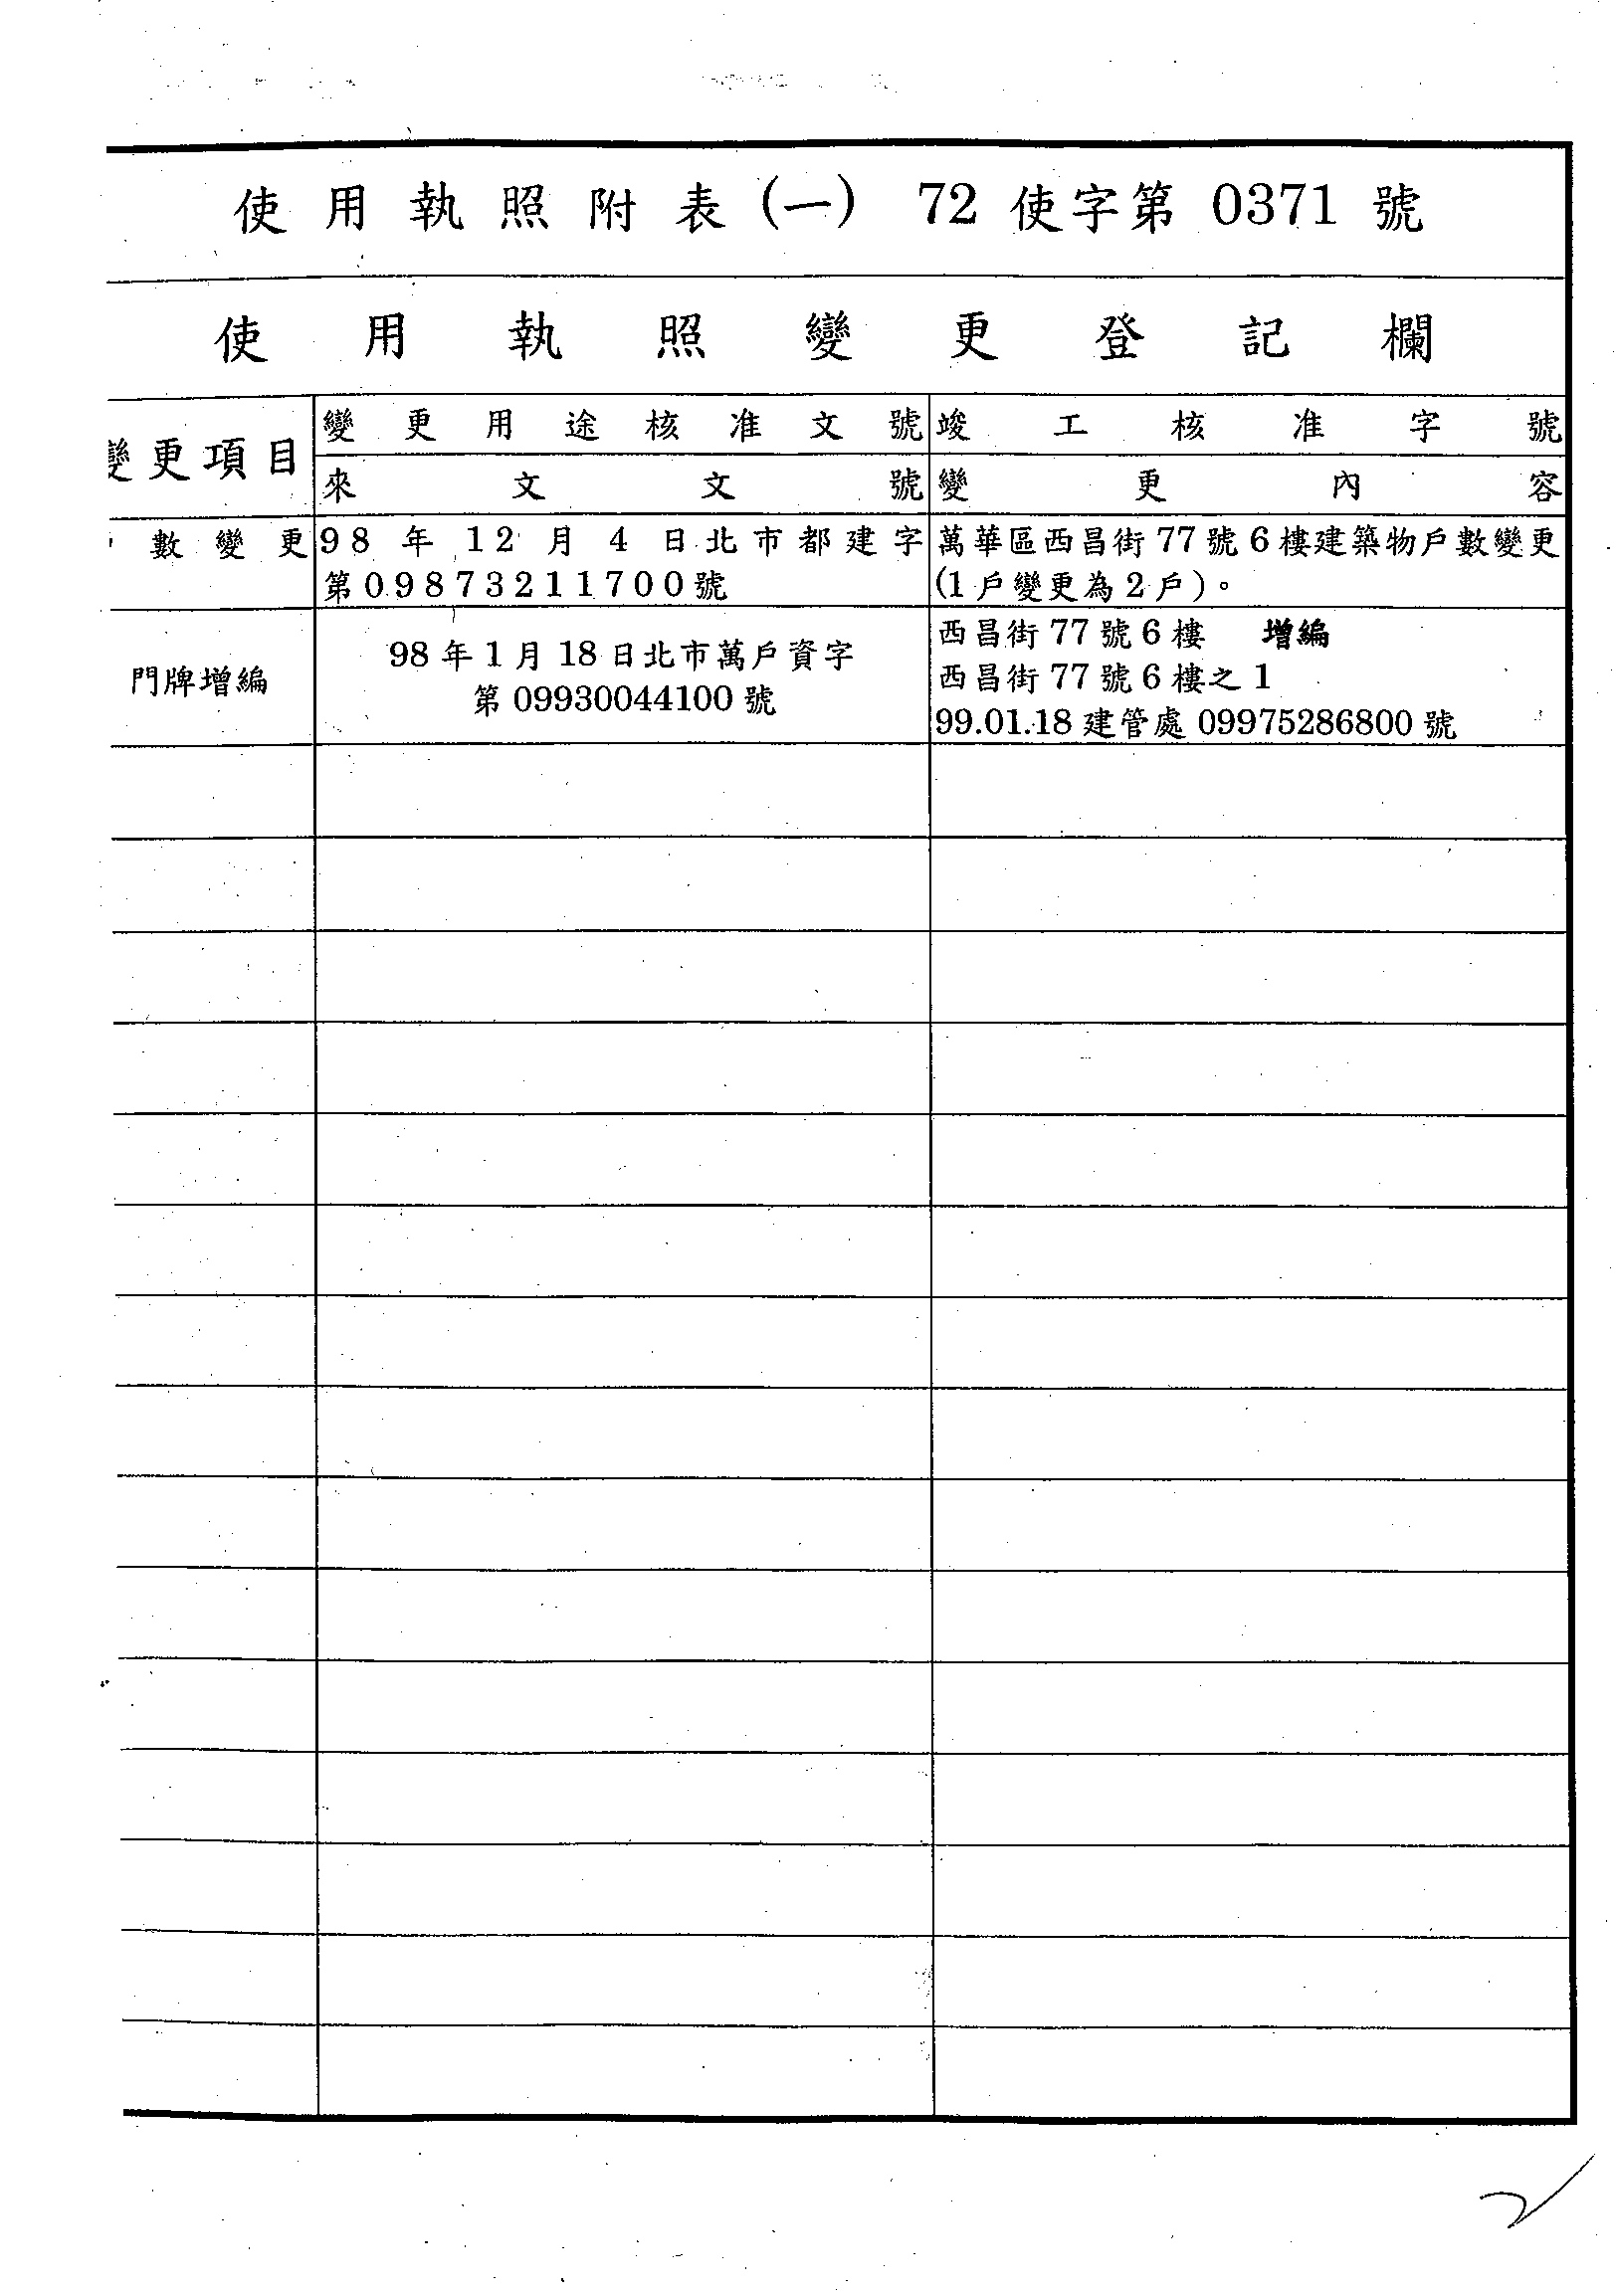 使用執照附表(一) 72使字第0371號
使用執照變更登記欄
變更項目
變更用途核准文號
竣工核准字號
來文文號
變更內容
數變更
98年12月4日北市都建字
第09873211700號
萬華區西昌街77號6樓建築物戶數變更
(1戶變更為2戶)。
門牌增編
98年1月18日北市萬戶資字
第09930044100號
西昌街77號6樓 增編
西昌街77號6樓之1
99.01.18建管處09975286800號